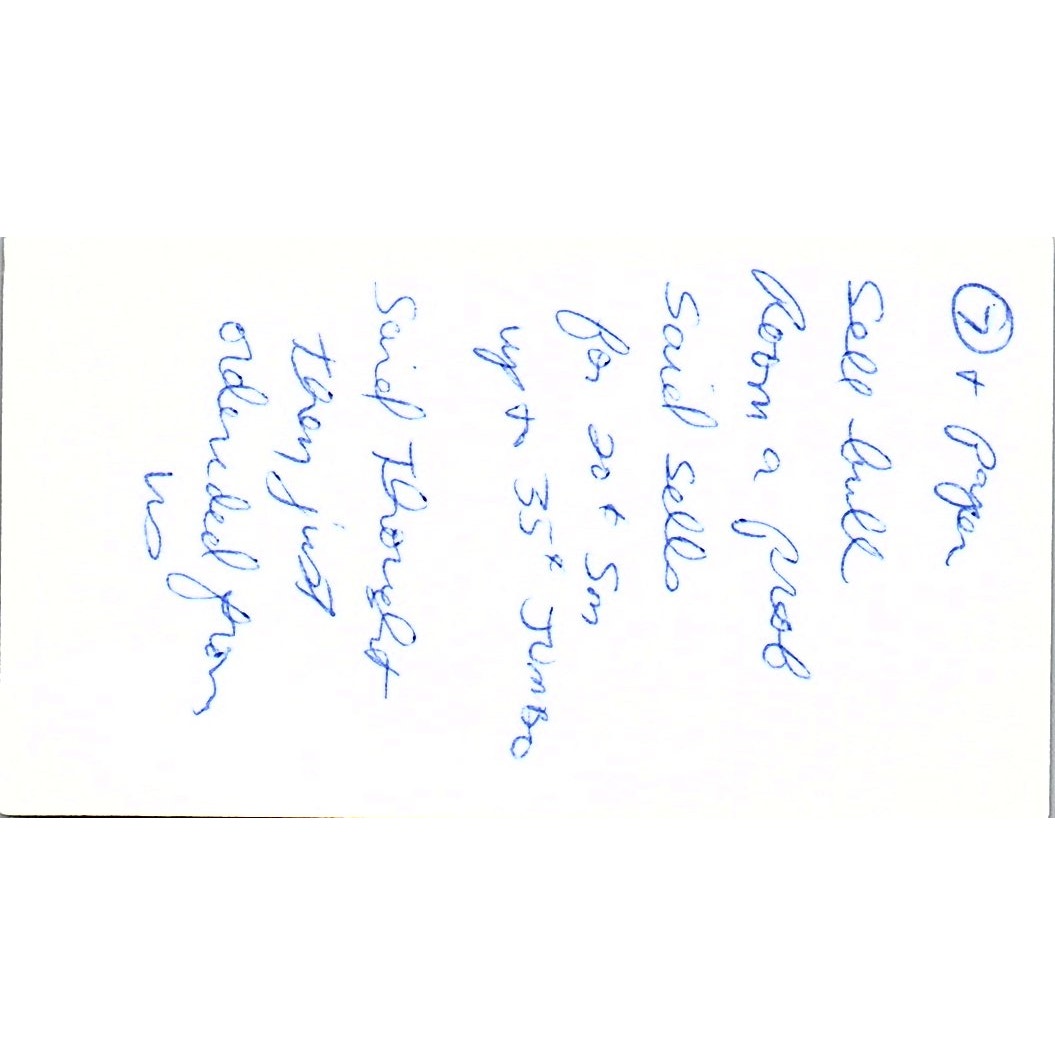 ⑦ + Paper
Sell bulk
Room a prob
Said sells
for 20¢ Sm
up to 35¢ JUMBO
Said thought
they just
ordered from
us